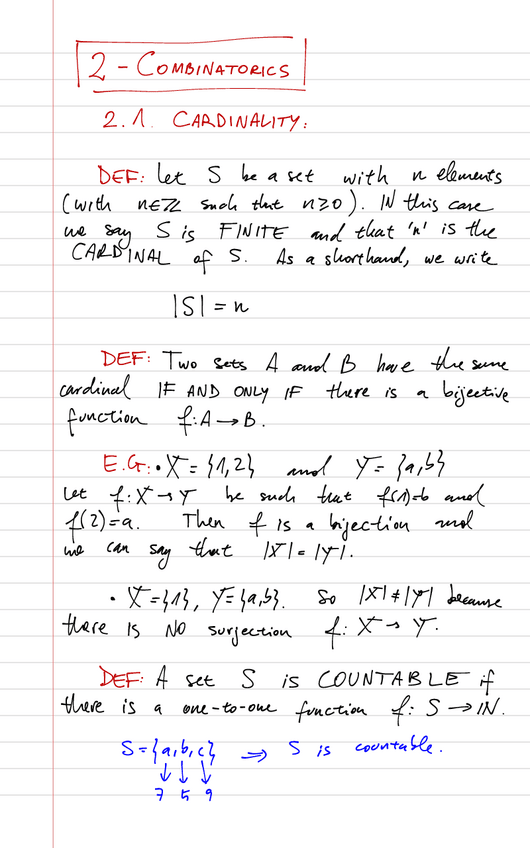 2 - COMBINATORICS
2.1. CARDINALITY:
DEF: Let S be a set with n elements
(with n∈ℤ such that n≥0). IN this case
we say S is FINITE and that 'n' is the
CARDINAL of S. As a shorthand, we write
|S| = n
DEF: Two sets A and B have the same
cardinal IF AND ONLY IF there is a bijective
function f: A → B.
E.G.: • X = {1,2} and Y = {a,b}
Let f: X → Y be such that f(1)=b and
f(2)=a. Then f is a bijection and
we can say that |X| = |Y|.
• X={1}, Y={a,b}. So |X|≠|Y| because
there is NO surjection f: X → Y.
DEF: A set S is COUNTABLE if
there is a one-to-one function f: S → ℕ.
S={a,b,c} ⇒ S is countable.
↓ ↓ ↓
7 5 9